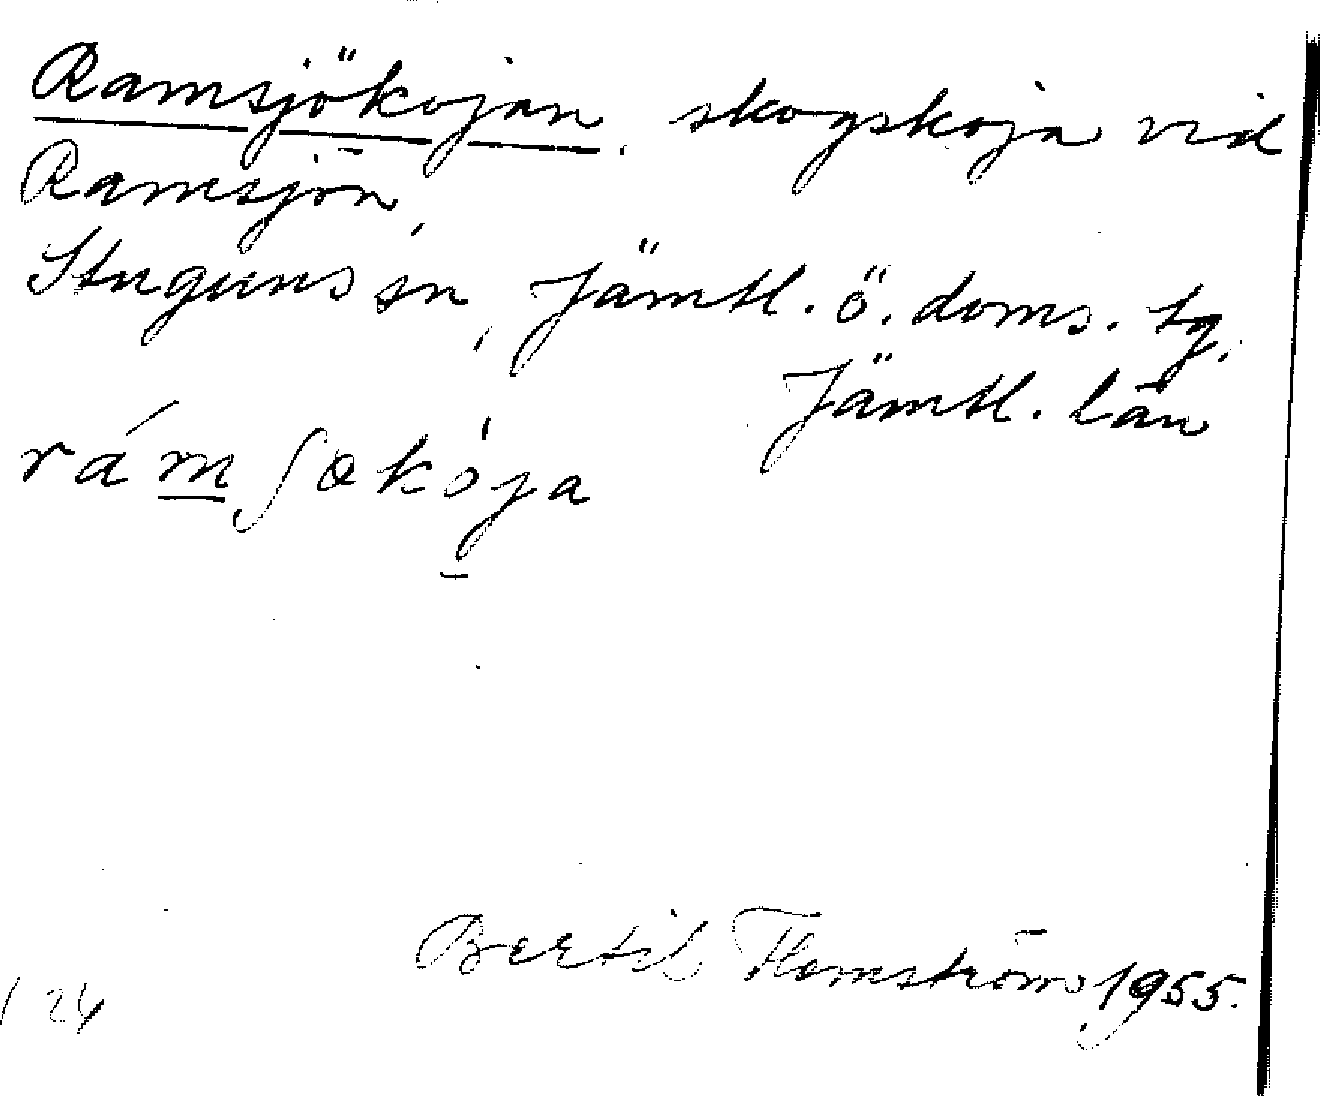 Ramsjökojan, skogskoja vid
Ramsjön,
Stuguns sn, Jämtl. ö. doms. tg,
Jämtl. län
rámʃækója
Bertil Flemström, 1955.
124